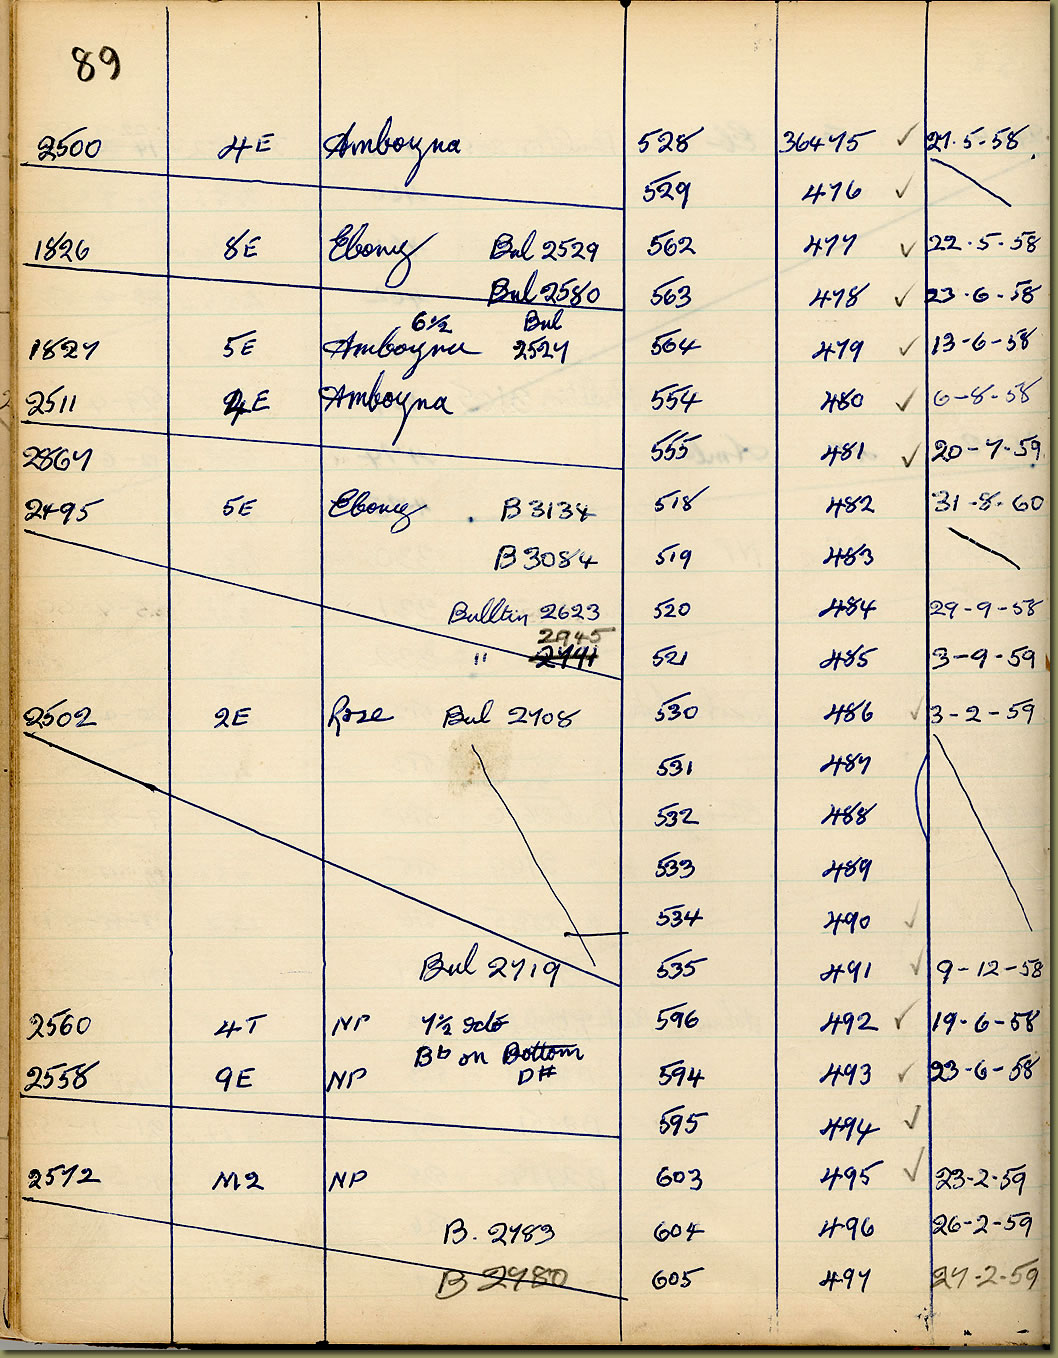 89
2500 4E Amboyna 528 36475 ✓ 21.5.58
529 476 ✓
1826 8E Ebony Bul 2529 562 477 ✓ 22.5.58
Bul 2580 563 478 ✓ 23-6-58
6½ Bul
1827 5E Amboyna 2527 564 479 ✓ 13-6-58
2511 4E Amboyna 554 480 ✓ 6-8-58
2867 555 481 ✓ 20-7-59
2495 5E Ebony B 3134 518 482 31-8-60
B 3084 519 483
Bulltin 2623 520 484 29-9-58
2945
" 521 485 3-9-59
2502 2E Rose Bul 2708 530 486 ✓ 3-2-59
531 487
532 488
533 489
534 490 ✓
Bul 2719 535 491 ✓ 9-12-58
2560 4T NP 7½ 596 492 ✓ 19-6-58
Bb on Bottom
2558 9E NP D# 594 493 ✓ 23-6-58
595 494 ✓
2572 M2 NP 603 495 ✓ 23-2-59
B. 2783 604 496 26-2-59
B 2780 605 497 27-2-59